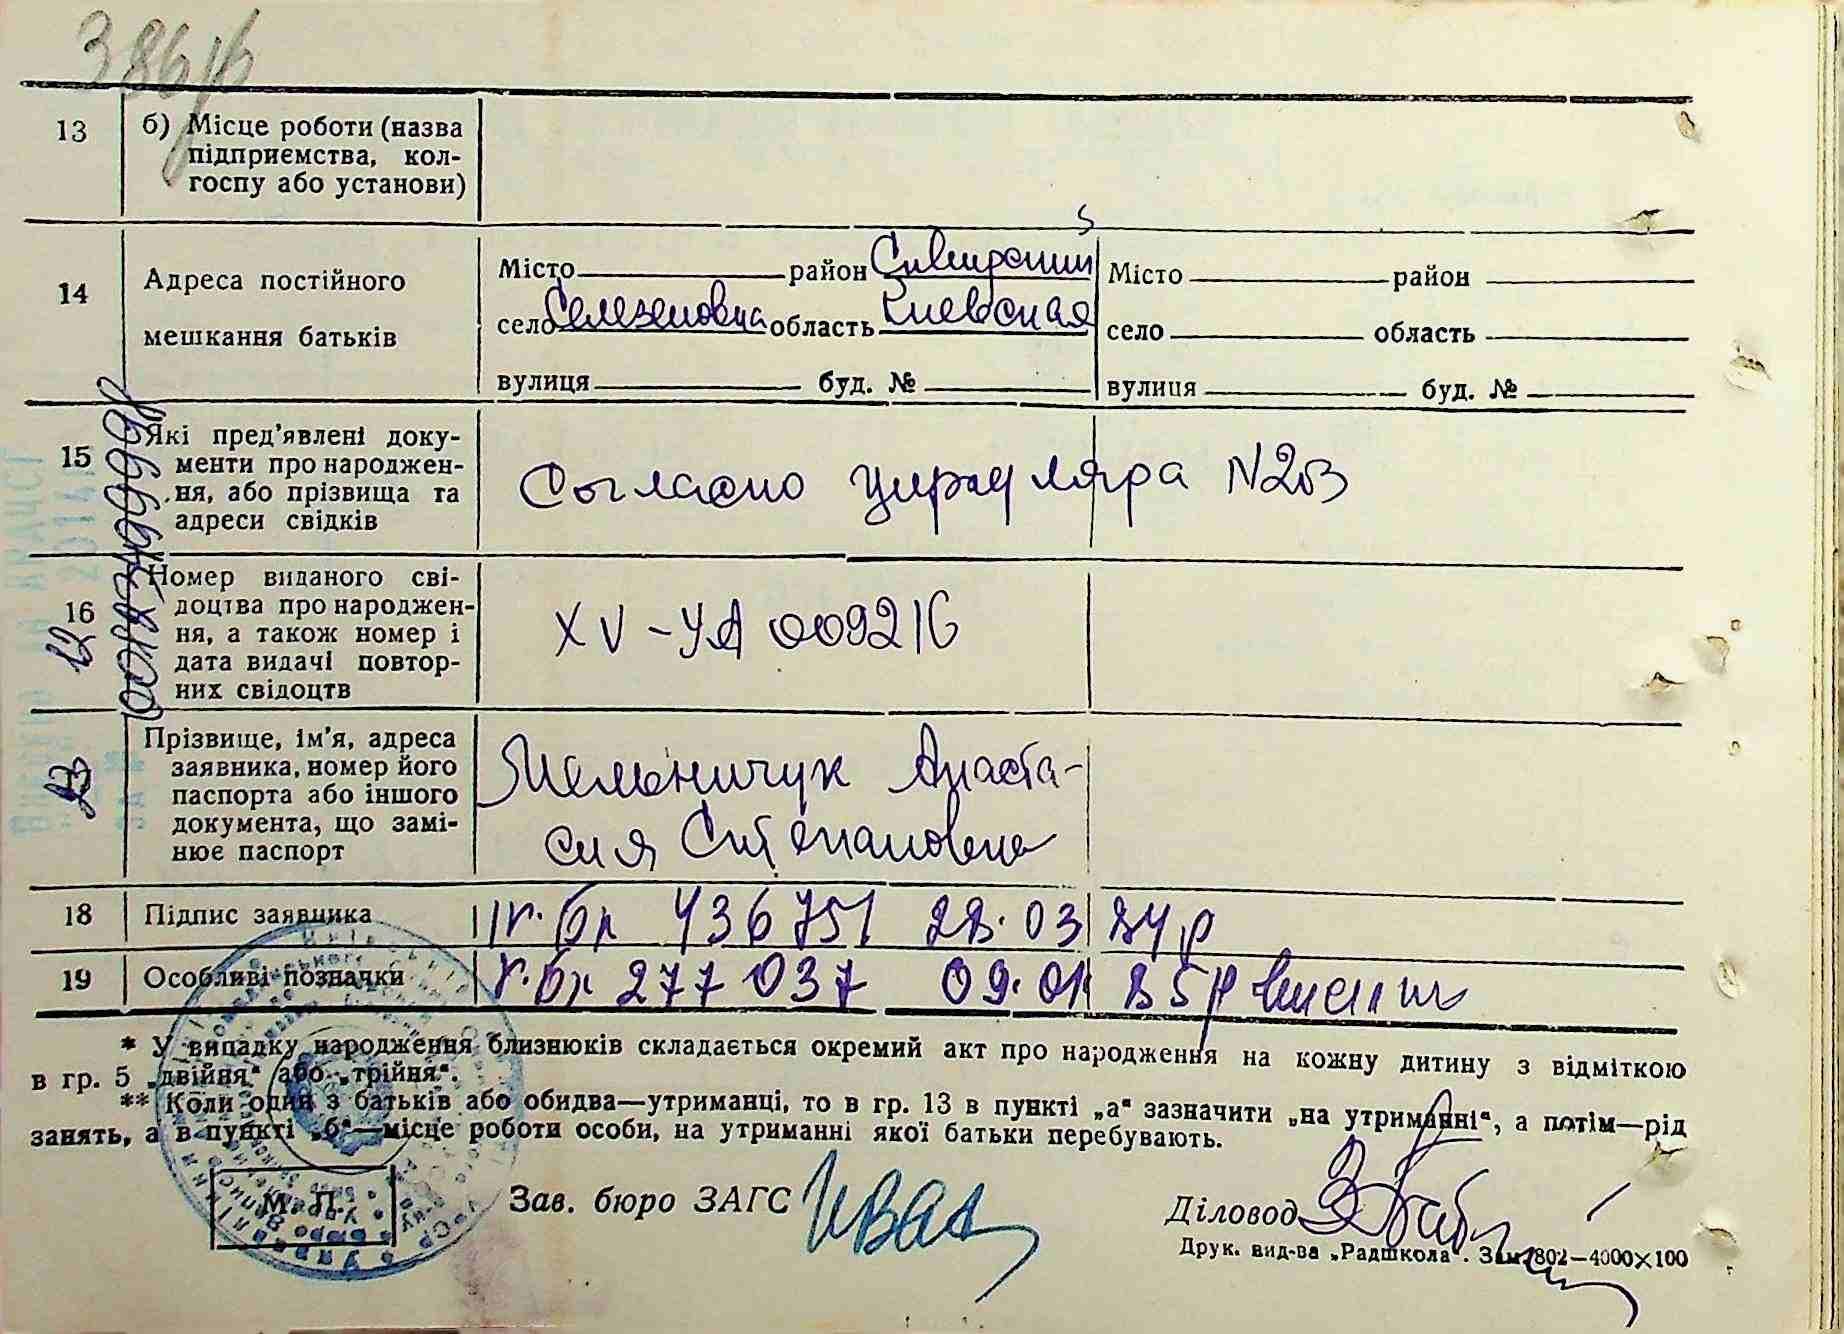 386
13 б) Місце роботи (назва
підприємства, кол-
госпу або установи)
14 Адреса постійного
мешкання батьків
Місто район Сквирский
село Селезеновка область Киевская
вулиця буд. №
Місто район
село область
вулиця буд. №
15 Які пред'явлені доку-
менти про народжен-
ня, або прізвища та
адреси свідків
Согласно циркуляра N203
16 Номер виданого сві-
доцтва про народжен-
ня, а також номер і
дата видачі повтор-
них свідоцтв
XV-УА 009216
Прізвище, ім'я, адреса
заявника, номер його
паспорта або іншого
документа, що замі-
нює паспорт
Анаста-
сия Степановна
18 Підпис заявника
436751 22.03 84р
19 Особливі позначки
277037 09.01 85р
* У випадку народження близнюків складається окремий акт про народження на кожну дитину з відміткою
в гр. 5 „двійня“ або „трійня“.
** Коли один з батьків або обидва—утриманці, то в гр. 13 в пункті „а“ зазначити „на утриманні“, а потім—рід
занять, а в пункті „б“—місце роботи особи, на утриманні якої батьки перебувають.
М. П.
Зав. бюро ЗАГС
Діловод
Друк. вид-ва „Радшкола“. Зам. 802—4000×100